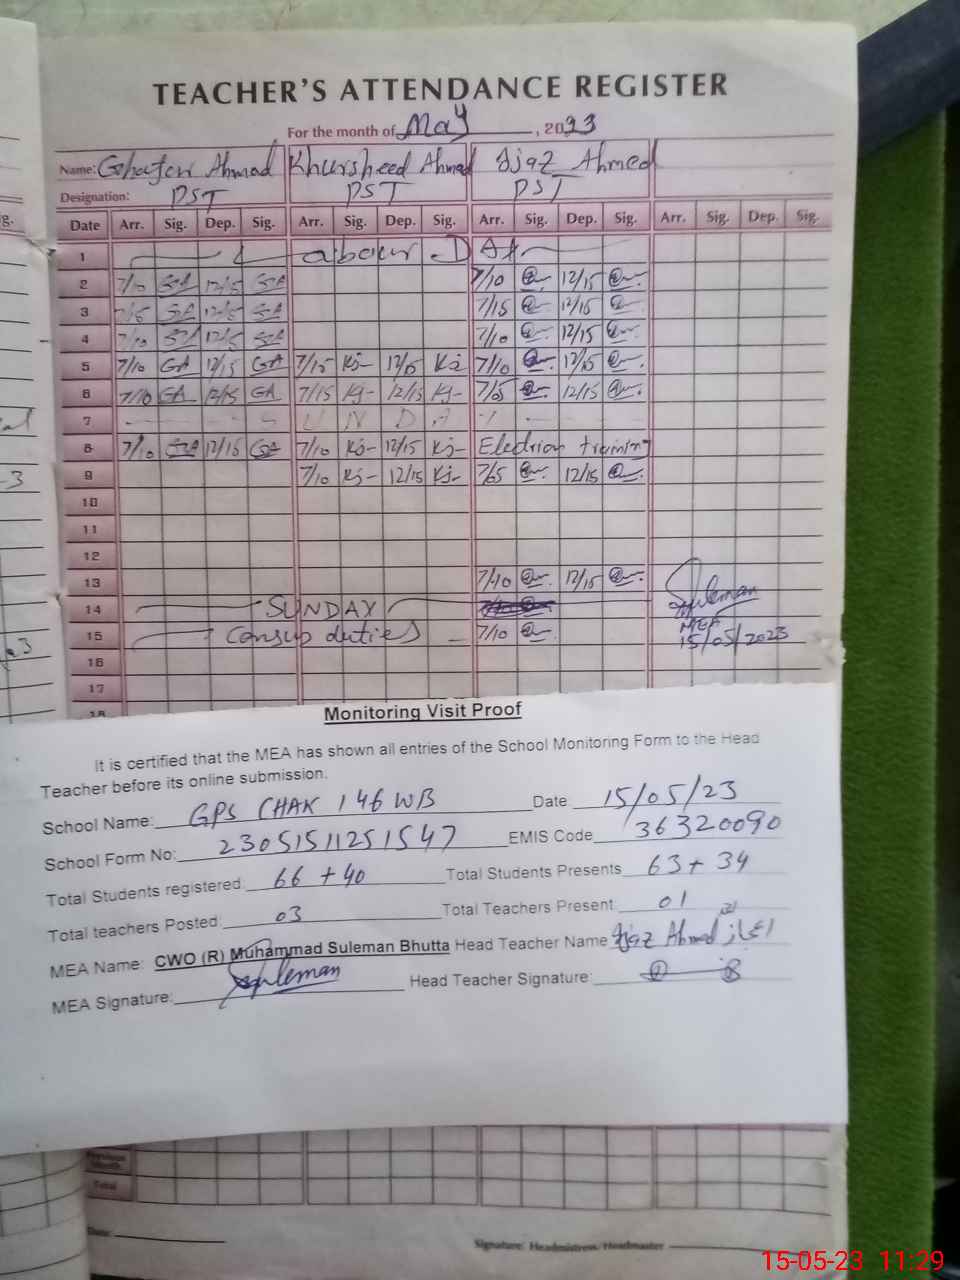 TEACHER'S ATTENDANCE REGISTER
For the month of May, 2023
Name: Ahmad Khursheed Ahmad Ijaz Ahmed
Designation: PST PST PST
Date Arr. Sig. Dep. Sig. Arr. Sig. Dep. Sig. Arr. Sig. Dep. Sig. Arr. Sig. Dep. Sig.
1 Labour DAY
2 7/10 GA 12/15 GA 7/10 12/15
3 GA 12/15 GA 7/15 12/15
4 7/10 GA 12/15 GA 7/10 12/15
5 7/10 GA 12/15 GA 7/15 Kj- 12/15 Kj 7/10 12/15
6 7/10 GA 12/15 GA 7/15 Kj- 12/15 Kj- 7/05 12/15
7 S U N D A Y
8 7/10 GA 12/15 GA 7/10 Kj- 12/15 Kj- Election training
9 7/10 Kj- 12/15 Kj- 7/05 12/15
10
11
12
13 7/10 12/15
14 SUNDAY
15 Consus duties 7/10
Suleman
MEA
15/05/2023
16
17
18
Monitoring Visit Proof
It is certified that the MEA has shown all entries of the School Monitoring Form to the Head
Teacher before its online submission.
School Name: GPS CHAK 146 WB Date: 15/05/23
School Form No: 23051511251547 EMIS Code 36320090
Total Students registered: 66 + 40 Total Students Presents 63 + 34
Total teachers Posted: 03 Total Teachers Present: 01
MEA Name: CWO (R) Muhammad Suleman Bhutta Head Teacher Name Ijaz Ahmad اعجاز
MEA Signature: Suleman Head Teacher Signature:
Previous Month
Total
Date:
Signature: Headmistress/Headmaster
15-05-23 11:29